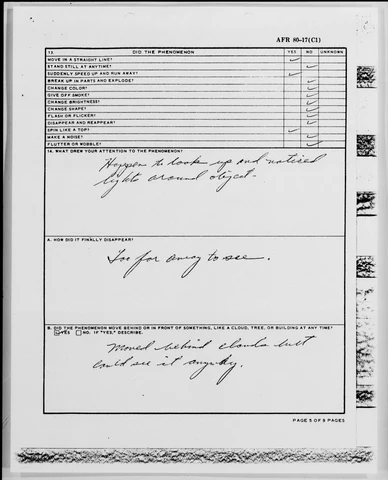 AFR 80-17(C1)
13. DID THE PHENOMENON YES NO UNKNOWN
MOVE IN A STRAIGHT LINE? ✓
STAND STILL AT ANYTIME? ✓
SUDDENLY SPEED UP AND RUN AWAY? ✓
BREAK UP IN PARTS AND EXPLODE? ✓
CHANGE COLOR? ✓
GIVE OFF SMOKE? ✓
CHANGE BRIGHTNESS? ✓
CHANGE SHAPE? ✓
FLASH OR FLICKER? ✓
DISAPPEAR AND REAPPEAR? ✓
SPIN LIKE A TOP? ✓
MAKE A NOISE? ✓
FLUTTER OR WOBBLE? ✓
14. WHAT DREW YOUR ATTENTION TO THE PHENOMENON?
Happen to look up and noticed
lights around object.
A. HOW DID IT FINALLY DISAPPEAR?
Too far away to see.
B. DID THE PHENOMENON MOVE BEHIND OR IN FRONT OF SOMETHING, LIKE A CLOUD, TREE, OR BUILDING AT ANY TIME?
☑YES ☐NO. IF "YES," DESCRIBE.
Moved behind clouds but
could see it anyway.
PAGE 5 OF 9 PAGES